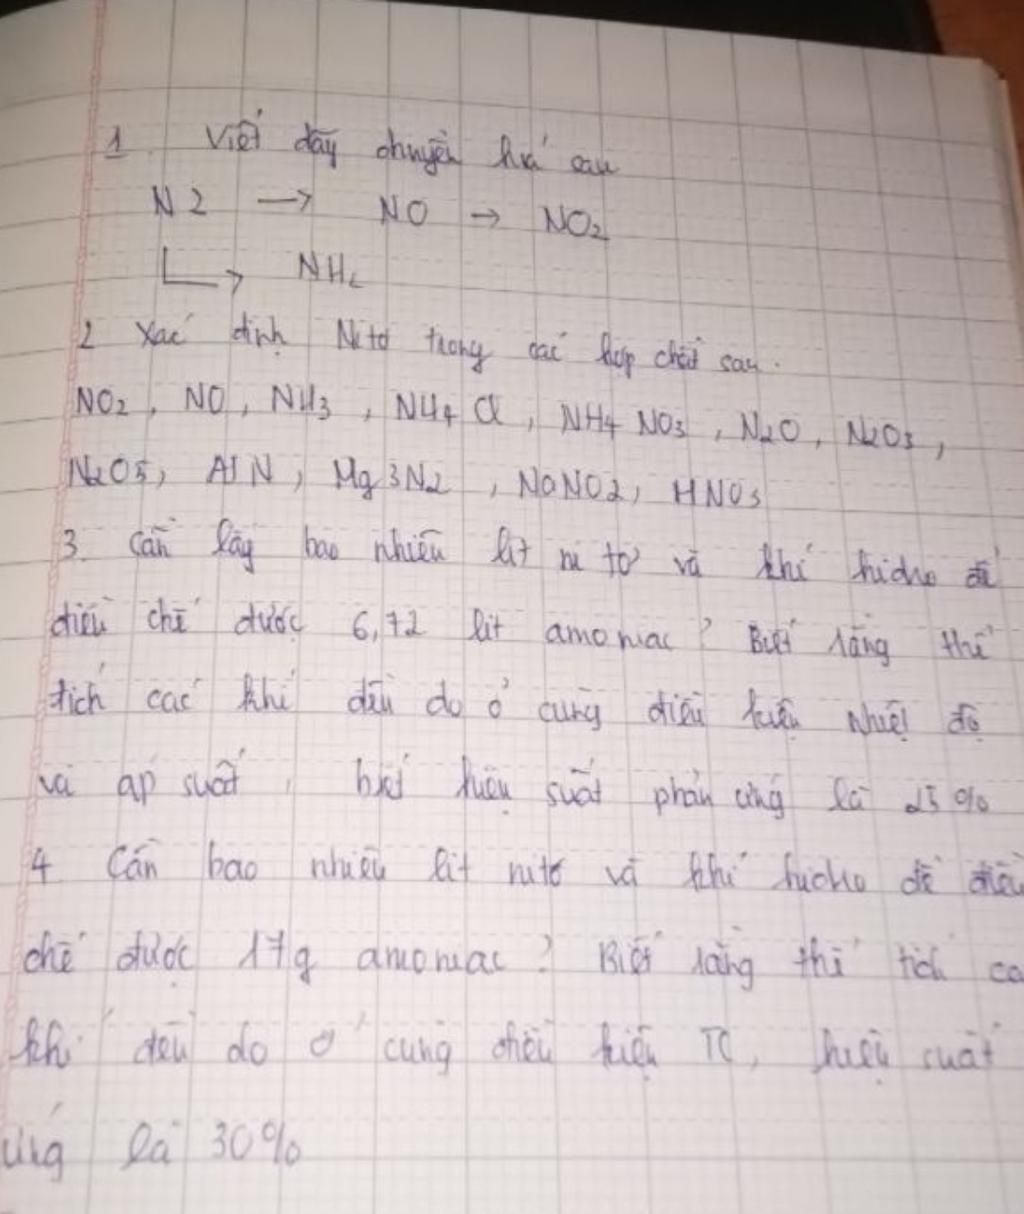 1. Viết dãy chuyển hoá sau
N2 → NO → NO2
NH
2 Xác định Nitơ trong các hợp chất sau.
NO2, NO, NH3, NH4 Cl, NH4 NO3, N2O, N2O3,
N2O5, AlN, Mg3N2, NaNO2, HNO3
3. Cần lấy bao nhiêu lít ni tơ và khí hidro để
điều chế được 6,72 lít amoniac? Biết rằng thể
tích các khí đều đo ở cùng điều kiện nhiệt độ
và áp suất, biết hiệu suất phản ứng là 25%
4 Cần bao nhiêu lít nitơ và khí hidro để điều
chế được 17g amoniac? Biết rằng thể tích cá
khí đều đo ở cùng điều kiện TC, hiệu suất
ứng là 30%